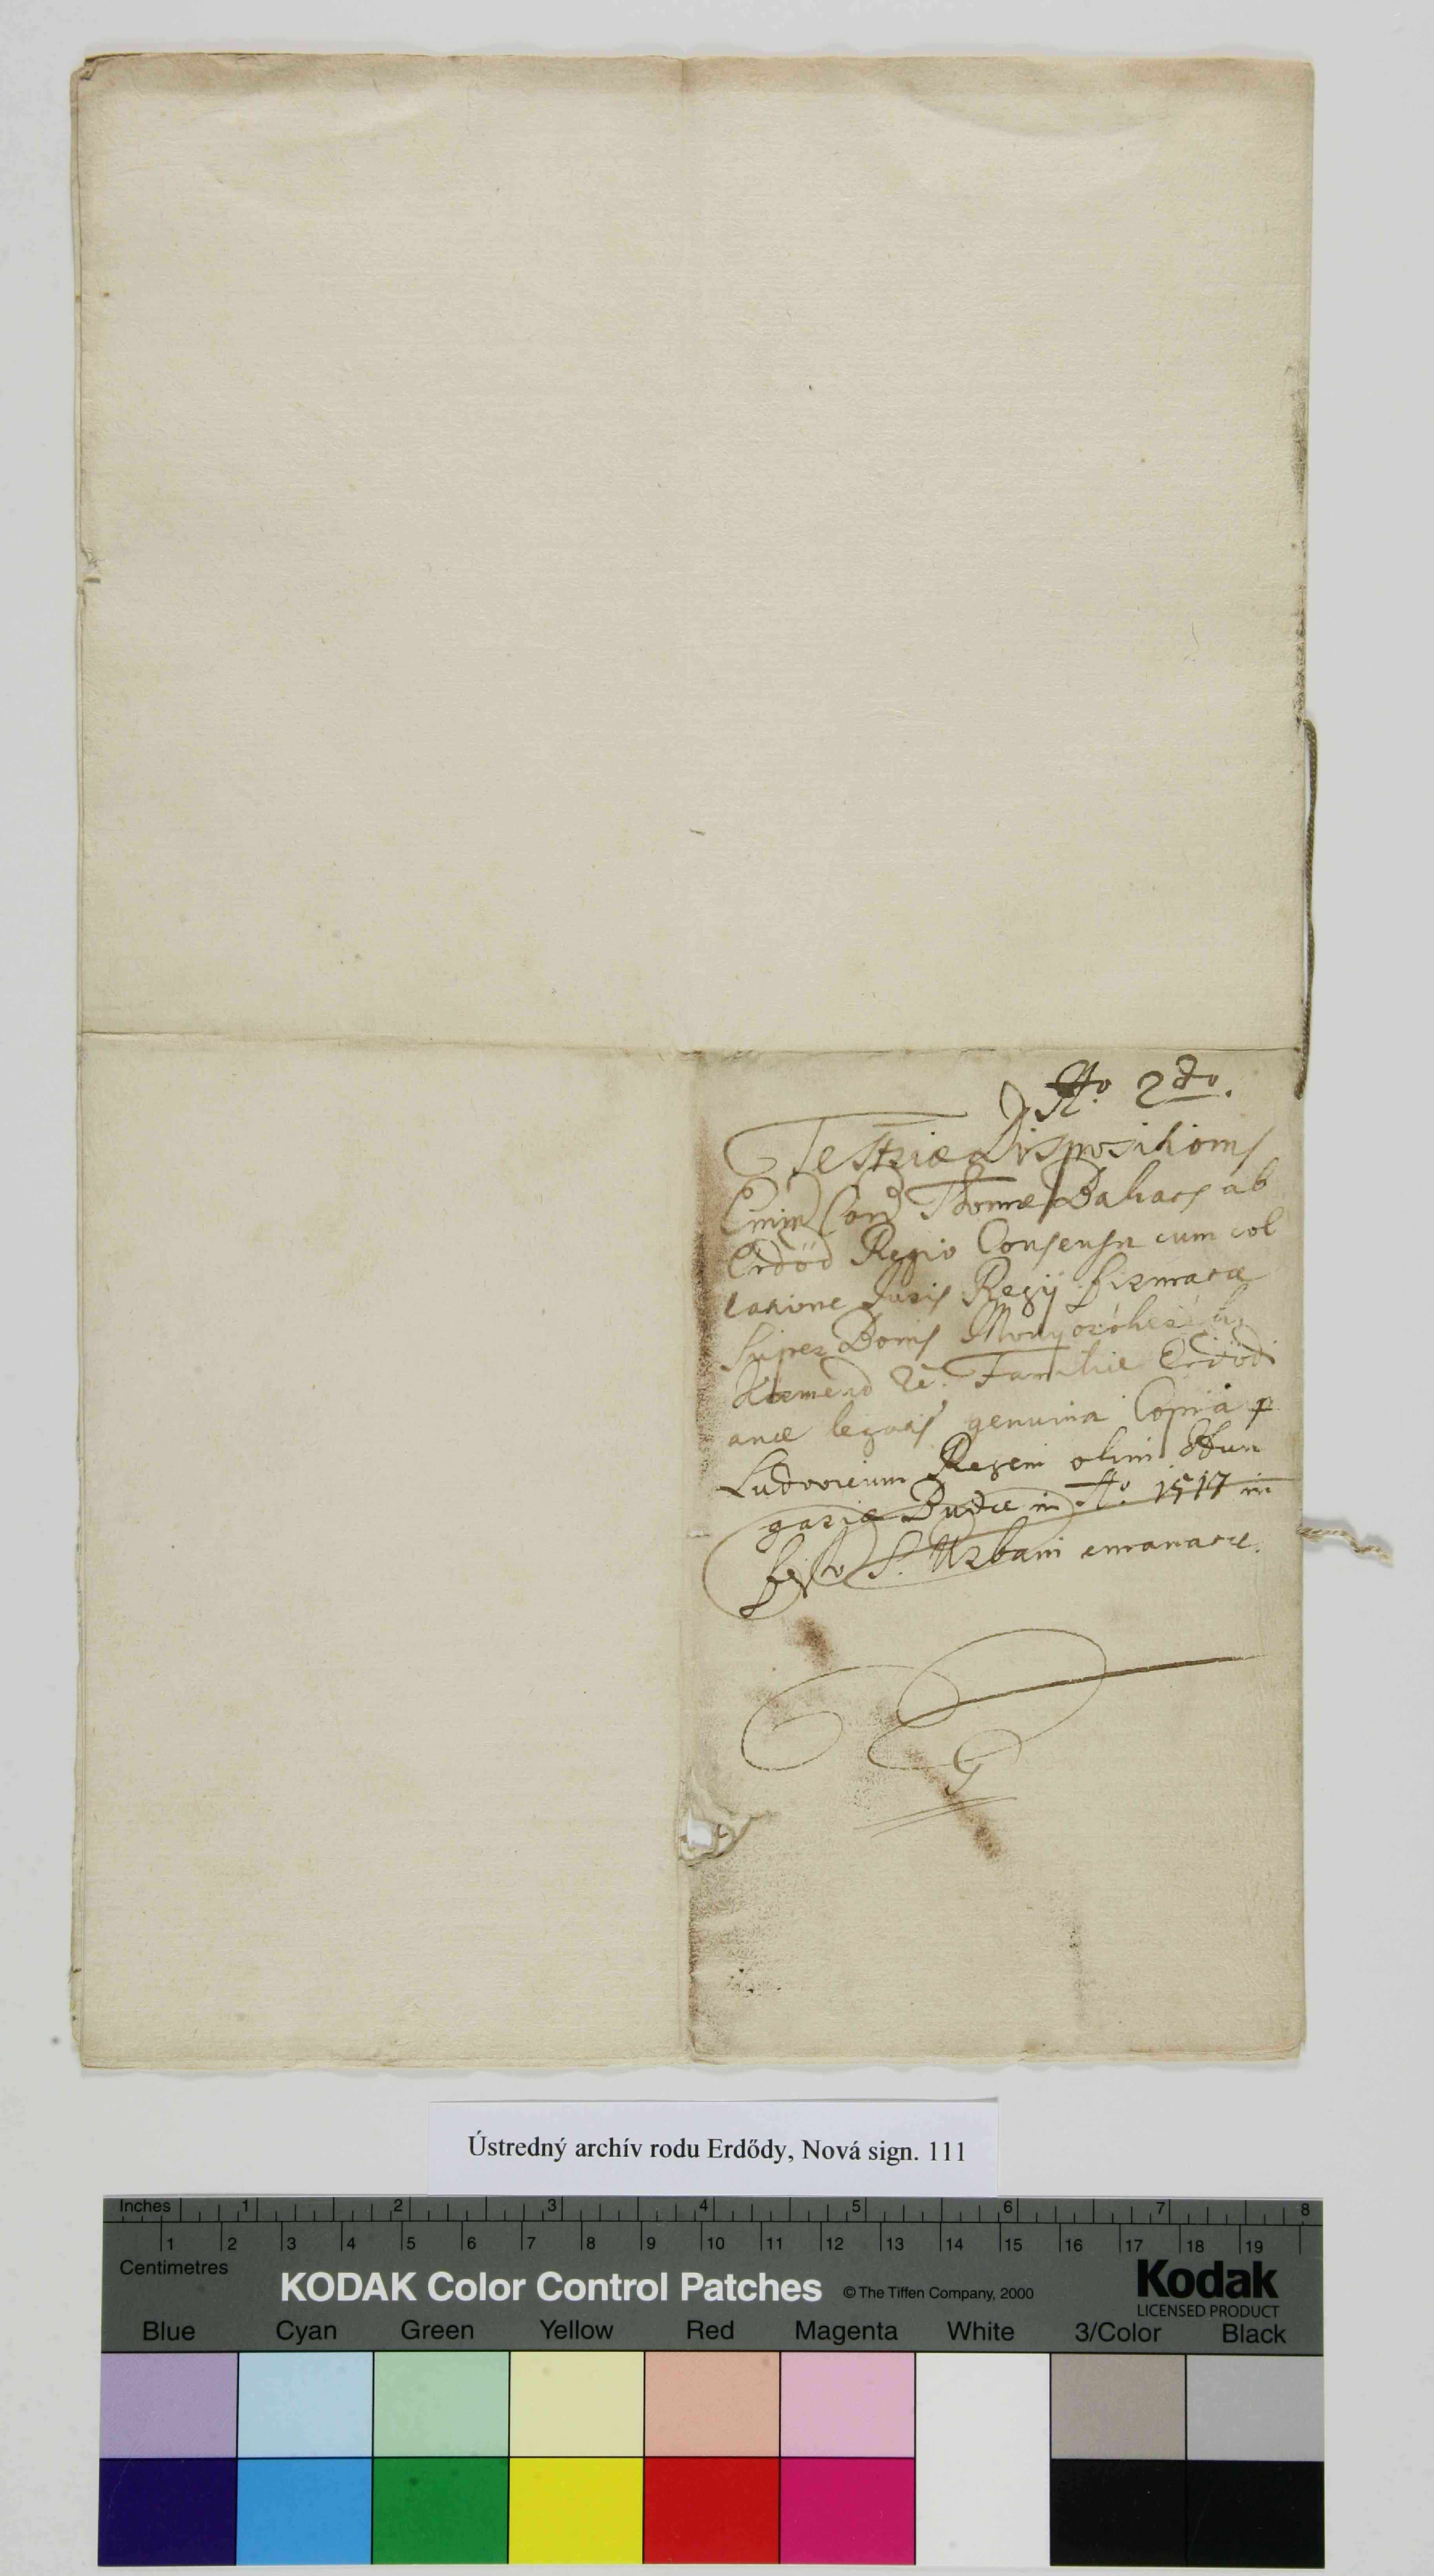 Nо 2do.
Testriae Dispositionis
Emin Card Thomae Bakacs ab
Erdöd Regio Consensu cum col
latione Juris Regij firmatae
super Bonis Monyorókerék,
Körmend &c. Familiae Erdödi
anae legatis genuina Copia p
Ludovicum Regem olim Hun
gariae Budae in Ao 1517 in
festo S. Urbani emanatae.
Ústredný archív rodu Erdődy, Nová sign. 111
Inches 1 2 3 4 5 6 7 8
1 2 3 4 5 6 7 8 9 10 11 12 13 14 15 16 17 18 19
Centimetres
KODAK Color Control Patches © The Tiffen Company, 2000 Kodak
LICENSED PRODUCT
Blue Cyan Green Yellow Red Magenta White 3/Color Black